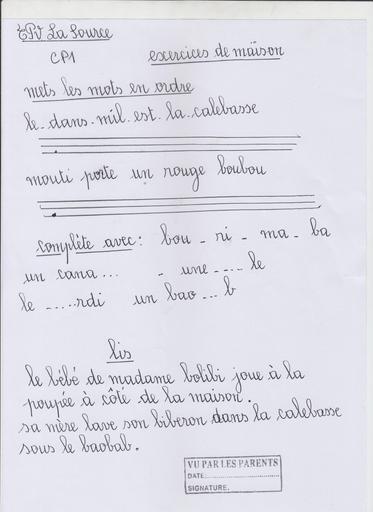 EPV La Source
CP1 exercices de maison
mets les mots en ordre
le - dans - mil - est - la - calebasse
mouti porte un rouge boubou
complète avec : bou - ri - ma - ba
un cana ... - une .... le
le .....rdi un bao ... b
lis
le bébé de madame bolibi joue à la
poupée à côté de la maison.
sa mère lave son biberon dans la calebasse
sous le baobab.
VU PAR LES PARENTS
DATE:
SIGNATURE.